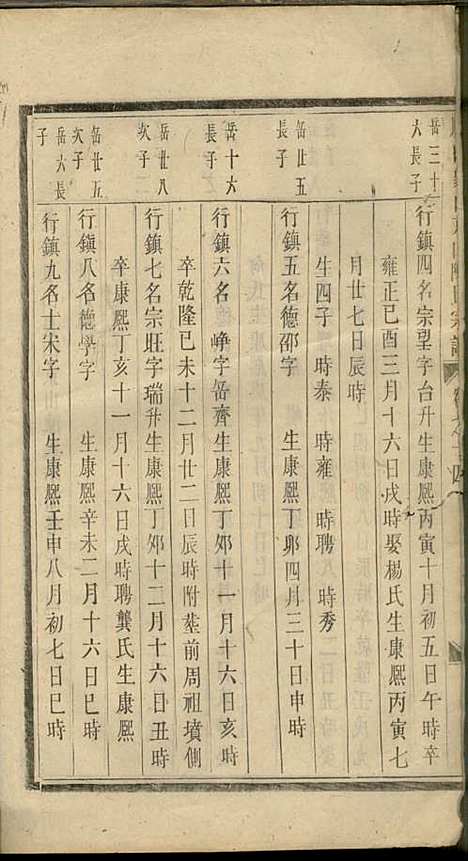 岳三十
六長子
行鎮四名宗望字台升生康熈丙寅十月初五日午時卒
雍正已酉三月十六日戌時娶楊氏生康熈丙寅七
月廿七日辰時
生四子 時泰 時雍 時聘 時秀
岳廿五
長子
行鎮五名德邵字 生康熈丁卯四月三十日申時
岳十六
長子
行鎮六名 崢字岳齊生康熈丁卯十一月十六日亥時
卒乾隆已未十二月廿二日辰時附塟前周祖墳側
岳廿八
次子
行鎮七名宗旺字瑞升生康熈丁卯十二月十六日丑時
卒康熈丁亥十一月十六日戌時聘龔氏生康熈
岳廿五
次子
行鎮八名德學字 生康熈辛未二月十六日巳時
岳六長
子
行鎮九名士宋字 生康熈壬申八月初七日巳時